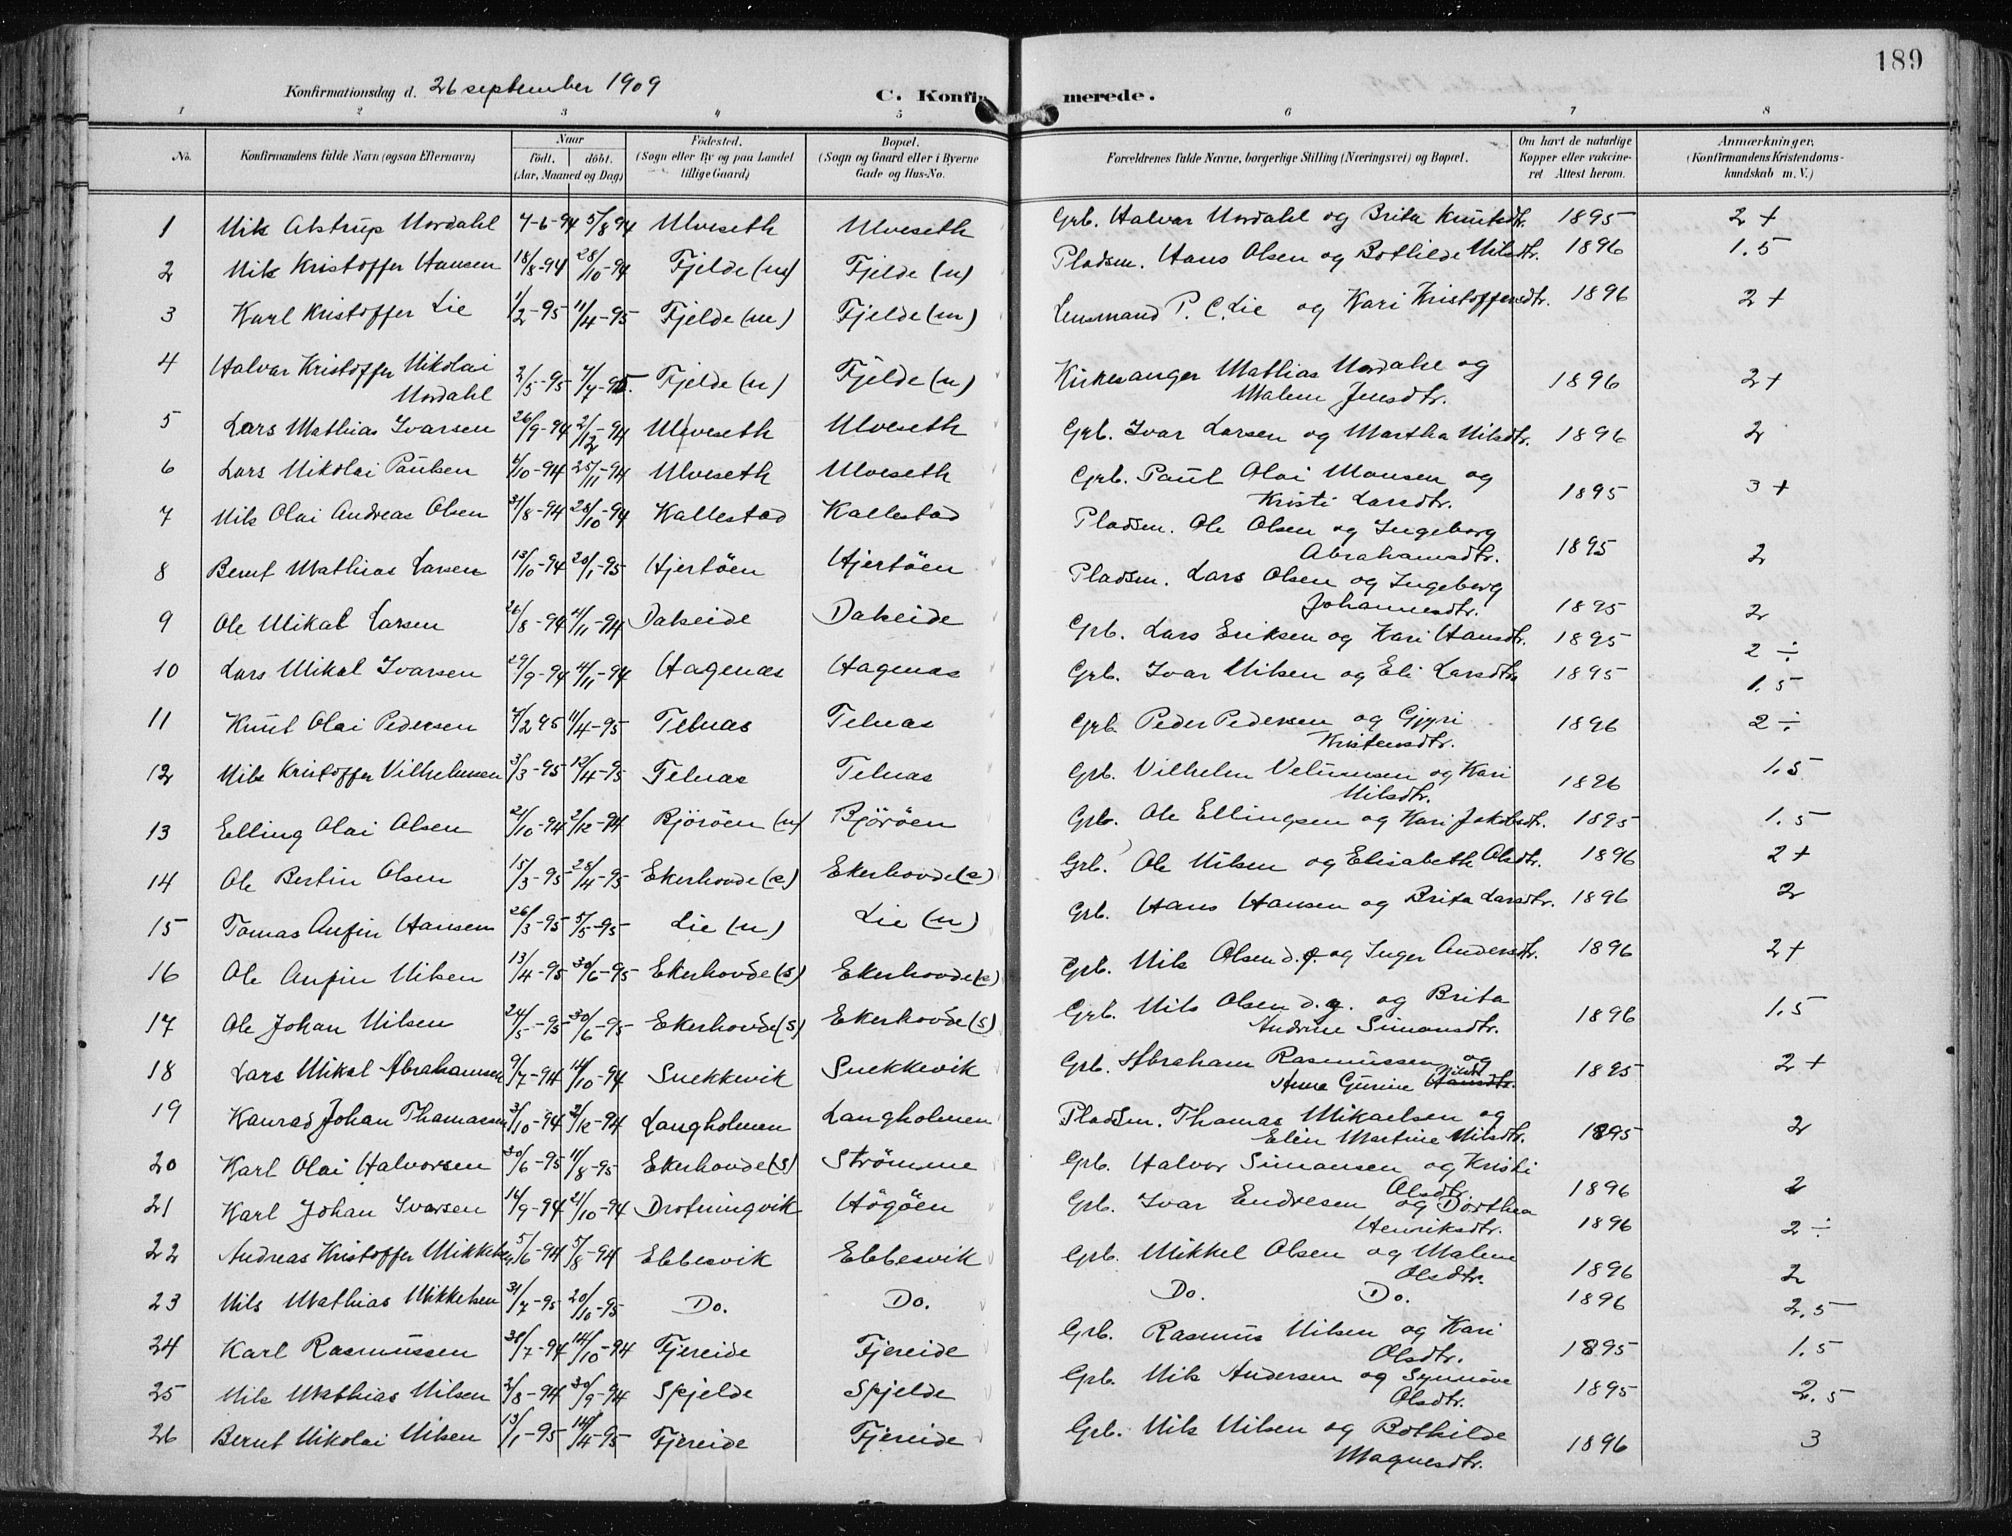 189
Konfirmationsdag d. 26 september 1909
C. Konfirmerede.
1 2 3 4 5 6 7 8
No. Konfirmandens fulde Navn (ogsaa Efternavn) Naar født. døbt. (Aar, Maaned og Dag) Fødested. (Sogn eller By og paa Landet tillige Gaard) Bopæl. (Sogn og Gaard eller i Byerne Gade og Hus-No. Forældrenes fulde Navne, borgerlige Stilling (Næringsvei) og Bopæl. Om havt de naturlige Kopper eller vakcineret Attest herom. Anmærkninger. (Konfirmandens Kristendomskundskab m. V.)
1 Nils Alstrup Nordahl 7-6-94 5/8 94 Ulveseth Ulveseth Grb. Halvar Nordahl og Brita Knutsdtr. 1895 2 +
2 Nils Kristoffer Hansen 18/8-94 28/10-94 Fjelde (n) Fjelde (n) Pladsm. Hans Olsen og Bothilde Nilsdtr. 1896 1.5
3 Karl Kristoffer Lie 1/2-95 11/4-95 Fjelde (n) Fjelde (n) Lensmand P. C. Lie og Kari Kristoffersdtr. 1896 2 +
4 Halvar Kristoffer Nikolai
Nordahl 2/5-95 7/7-95. Fjelde (n) Fjelde (n) Kirkesanger Mathias Nordahl og
Malene Jensdtr. 1896 2 +
5 Lars Mathias Ivarsen 26/9-94 2/12-94 Ulveseth Ulveseth Grb. Ivar Larsen og Martha Nilsdtr. 1896 2
6 Lars Nikolai Paulsen 6/10-94 25/11-94 Ulveseth Ulveseth Grb. Paul Olai Monsen og
Kristi Larsdtr. 1895 3 +
7 Nils Olai Andreas Olsen 31/8-94 28/10-94 Kallestad Kallestad Pladsm. Ole Olsen og Ingeborg
Abrahamsdtr. 1895 2
8 Bernt Mathias Larsen 13/10-94 20/1-95 Hjertöen Hjertöen Pladsm. Lars Olsen og Ingeborg
Johannesdtr. 1895 2
9 Ole Mikal Larsen 26/8-94 4/11-94 Dalseide Dalseide Grb. Lars Eriksen og Kari Hansdtr. 1895 2 ÷
10 Lars Mikal Ivarsen 29/9-94 4/11-94 Hagenæs Hagenæs Grb. Ivar Nilsen og Eli Larsdtr 1895 1.5
11 Knut Olai Pedersen 7/2 95 11/4-95 Telnæs Telnæs Grb. Peder Pedersen og Gjyri
Kristensdtr. 1896 2 ÷
12 Nils Kristoffer Vilhelmsen 3/3-95 12/4-95 Telnæs Telnæs Grb. Vilhelm Velumsen og Kari
Nilsdtr. 1896 1.5
13 Elling Olai Olsen 21/10-94 2/12-94 Björöen (n) Björöen Grb. Ole Ellingsen og Kari Jakobsdtr. 1895 1.5
14 Ole Bertin Olsen 15/3-95 28/4-95 Ekerhovde (s) Ekerhovde (s) Grb. Ole Nilsen og Elisabeth Olsdtr. 1896 2 +
15 Tomas Anfin Hansen 26/3-95 5/5-95 Lie (n) Lie (n) Grb. Hans Hansen og Brita Larsdtr. 1896 2
16 Ole Anfin Nilsen 13/4-95 30/6-95 Ekerhovde (s) Ekerhovde (s) Grb. Nils Olsen d. y. og Inger Andersdtr. 1896 2 +
17 Ole Johan Nilsen 24/5-95 30/6-95 Ekerhovde (s) Ekerhovde (s) Grb. Nils Olsen d. y. og Brita
Andrine Simonsdtr. 1896 1.5
18 Lars Mikal Abrahamsen 9/7-94 14/10-94 Snekkevik Snekkevik Grb. Abraham Rasmussen og
Anna Gurine Hansdtr. Nilsdtr. 1895 2 +
19 Konrad Johan Thomassen 3/10-94 2/12-94 Langholmen Langholmen Pladsm. Thomas Mikaelsen og
Elen Martine Nilsdtr. 1895 2
20 Karl Olai Halvorsen 30/6-95 11/8-95 Ekerhovde (s) Strömme Grb. Halvor Simonsen og Kristi
Olsdtr. 1896 2
21 Karl Johan Ivarsen 14/9-94 21/10-94 Drotningvik Högöen Grb. Ivar Endresen og Dorthea
Henriksdtr. 1896 2 ÷
22 Andreas Kristoffer Mikkelsen 5/6-94 5/8-94 Ebbesvik Ebbesvik Grb. Mikkel Olsen og Malene
Olsdtr. 1896 2
23 Nils Mathias Mikkelsen 31/7-95 20/10-95 Do. Do. Do. Do. 1896 2.5
24 Karl Rasmussen 30/7-94 14/10-94 Fjereide Fjereide Grb. Rasmus Nilsen og Kari
Olsdtr. 1895 1.5
25 Nils Mathias Nilsen 2/8-94 30/9-94 Spjelde Spjelde Grb. Nils Andersen og Synnöve
Olsdtr. 1895 2.5
26 Bernt Nikolai Nilsen 13/1-95 14/4-95 Fjereide Fjereide Grb. Nils Nilsen og Bothilde
Magnesdtr. 1896 3